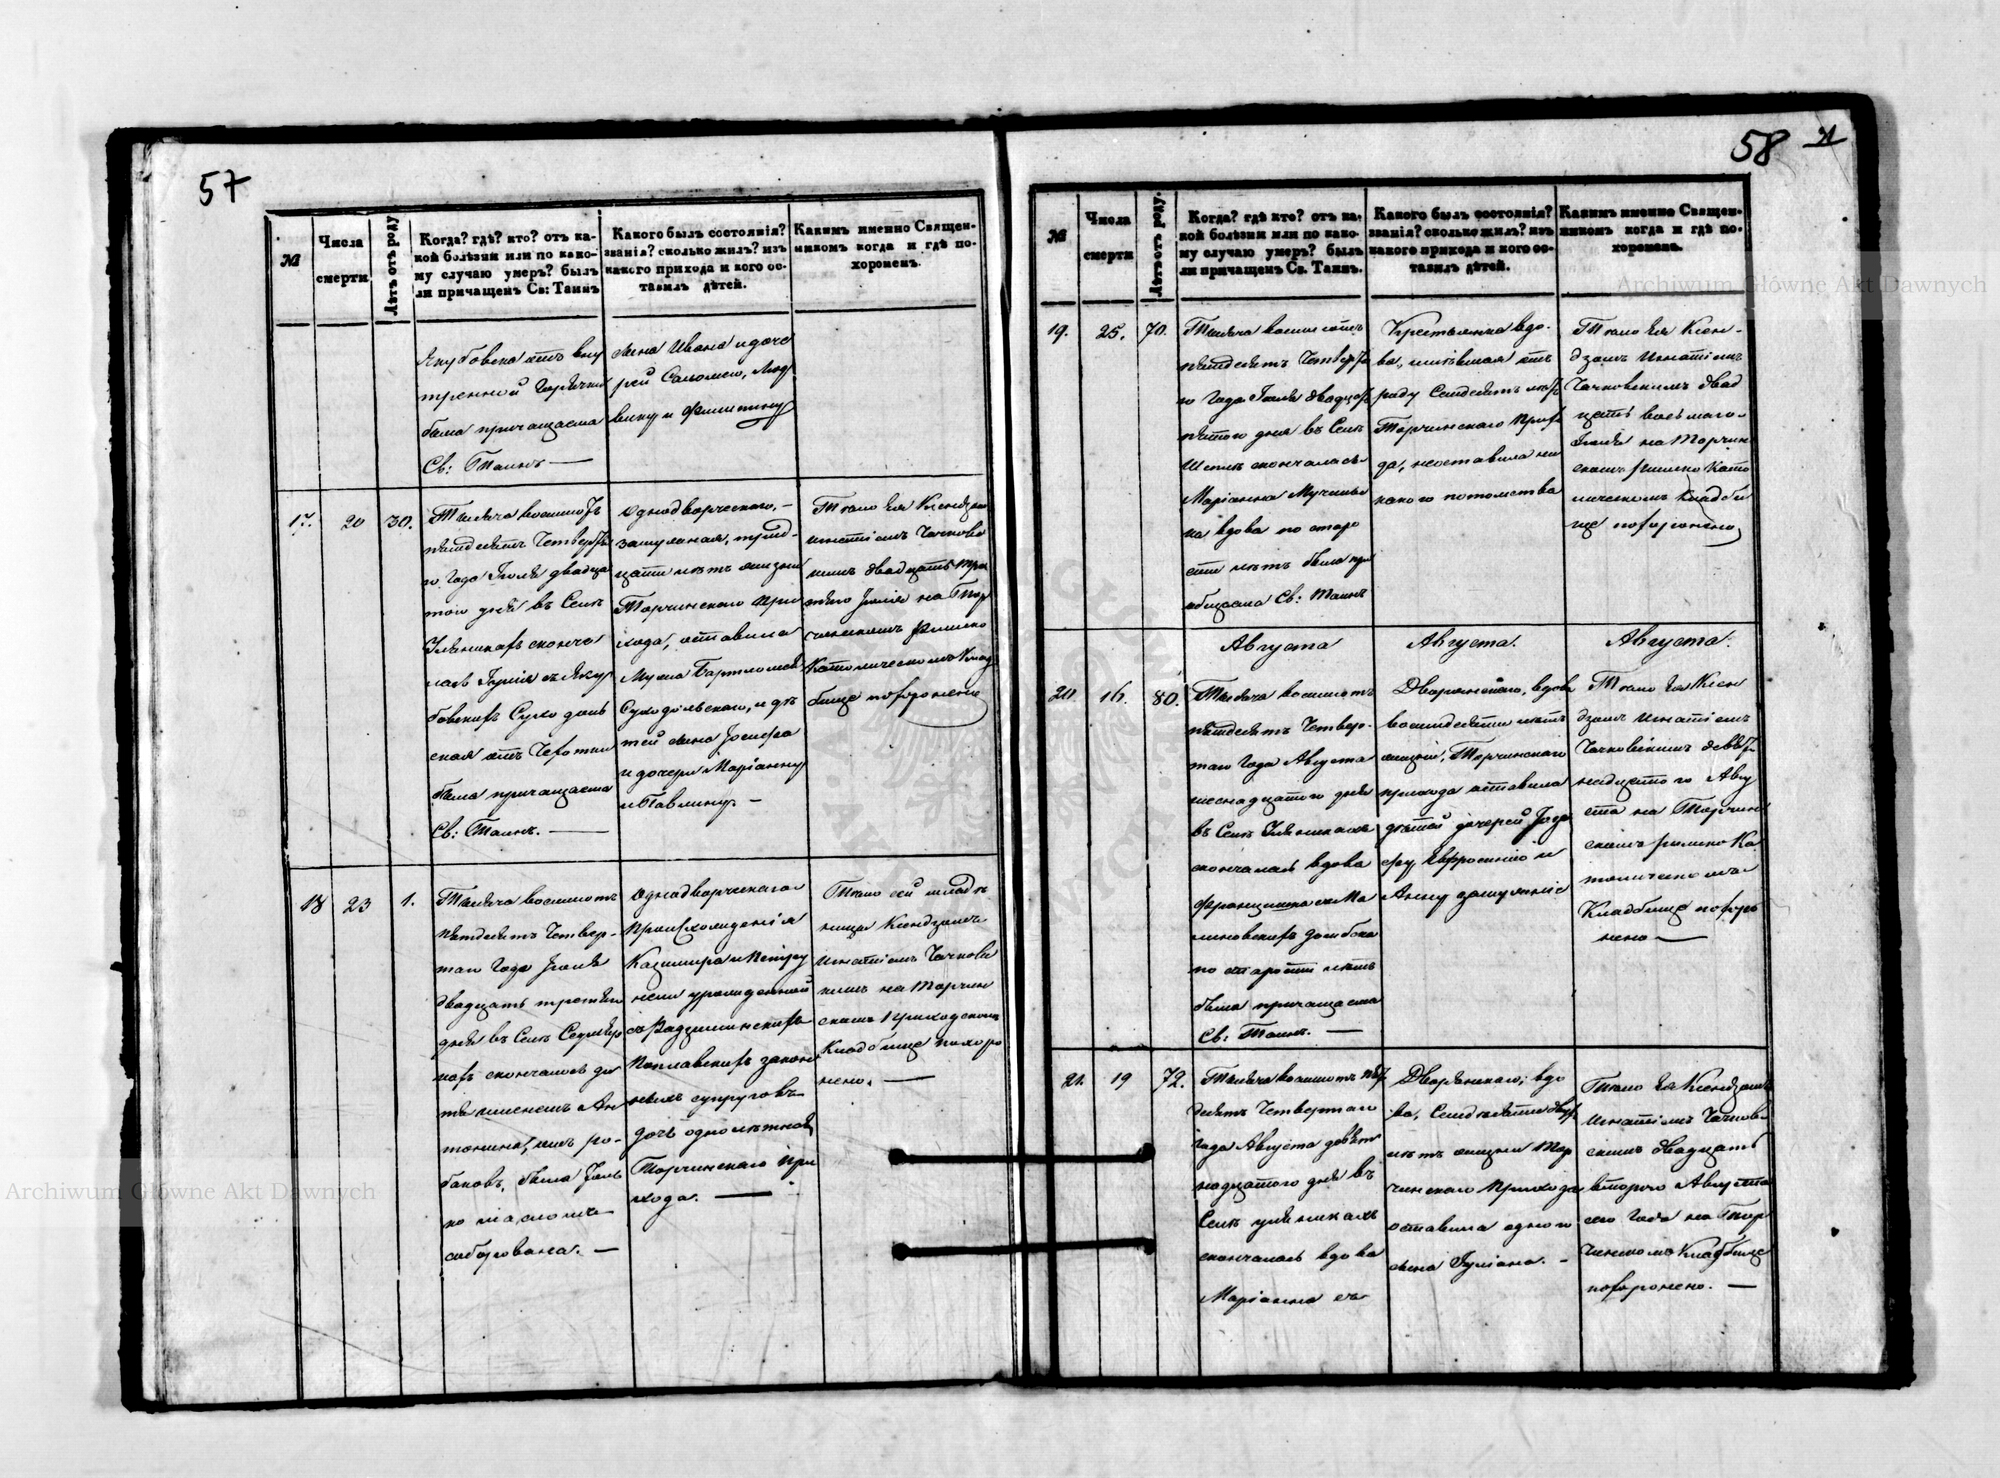 57
№
Числа
смерти
Лѣтъ отъ роду
Когда? гдѣ? кто? отъ ка-
кой болѣзни или по како-
му случаю умеръ? былъ
ли причащенъ Св: Таинъ
Какого былъ состоянія?
званія? сколько жилъ? изъ
какого прихода и кого ос-
тавилъ дѣтей.
Какимъ именно Священ-
никомъ когда и гдѣ по-
хороненъ.
Якубовска отъ вну
тренной горячки
была причащаема
Св: Таинъ —
сына Ивана и доче
рей Саломею, Люд
вику и Филипину
17.
20
30.
Тысяча восемсотъ
пятдесятъ Четверта
го Года Іюля двадца
того дня въ Селѣ
сконча
лась Юлія съ Яку
бовскихъ Суходоль
ская отъ Чехотки
была причащаема
Св: Таинъ. —
Однодворческаго, —
замужная, трид-
цати лѣтъ жизни
Торчинскаго При
хода, оставила
Мужа Бартломея
Суходольскаго, и дѣ
тей сына Іосифа
и дочери Маріанну
и Павлину. —
Тѣло Ея Ксендзомъ
Игнатіемъ Чачковс
кимъ двадцать тре
тяго Іюля на Тор
чинскомъ Римско
Католическомъ Клад
бище похоронено
18
23
1.
Тысяча восемсотъ
пятдесятъ Четвер-
таго Года Іюля
двадцать третяго
дня въ Селѣ
скончалось ди
тя именемъ Ан
тонина, отъ ро-
баковъ, была толь
ко масломъ
соборована. —
Однодворческаго
Происхожденія
Казимира и
урожденной
съ Радзиминскихъ
Поплавскихъ закон
ныхъ супруговъ
дочь однолѣтная,
Торчинскаго При
хода. —
Тѣло сей младе
ницы Ксендзомъ
Игнатіемъ Чачковс
кимъ на Торчин
скомъ Приходскомъ
Кладбище похоро
нено. —
58
№
Числа
смерти
Лѣтъ отъ роду.
Когда? гдѣ кто? отъ ка-
кой болѣзни или по како-
му случаю умеръ? былъ
ли причащенъ Св. Таинъ.
Какого былъ состоянія?
званія? сколько жилъ? изъ
какого прихода и кого ос-
тавилъ дѣтей.
Какимъ именно Священ-
никомъ когда и гдѣ по-
хороненъ.
19.
25.
70.
Тысяча восемсотъ
пятдесятъ Четверта
го Года Іюля двадцать
пятого дня въ Селѣ
скончалась
Маріанна
вдова по старо
сти лѣтъ была при
общаема Св: Таинъ
Крестьянка вдо-
ва, имѣвшая отъ
роду Семдесятъ лѣтъ
Торчинскаго Прихо
да, неоставила ни
какого потомства
Тѣло Ея Ксен-
дзомъ Игнатіемъ
Чачковскимъ двад
цать восьмаго
Іюля на Торчин
скомъ римско Като
лическомъ кладби
ще похоронено
Августа
Августа.
Августа.
20
16.
80.
Тысяча восемсотъ
пятдесятъ Четвер-
таго Года Августа
шеснадцатого дня
въ Селѣ
скончалась вдова
Францишка съ Ма
линовскихъ
по старости лѣтъ
была причащаема
Св: Таинъ. —
Дворянскаго, вдова
восемдесяти лѣтъ
жизни, Торчинскаго
прихода оставила
дѣтей дочерей
Евфросинію и
Анну замужніе
Тѣло Ея Ксен
дзомъ Игнатіемъ
Чачковскимъ девят
надцатого Авгу
ста на Торчин
скомъ римско Ка
толическомъ
Кладбище похоро
нено —
21.
19
72.
Тысяча восемсотъ пят
десятъ Четвертаго
Года Августа девят
надцатого дня въ
Селѣ
скончалась вдова
Маріанна съ
Дворянскаго, вдо
ва, Семдесяти двухъ
лѣтъ жизни Тор
чинскаго Прихода
оставила одного
сына Юліана. —
Тѣло Ея Ксендзомъ
Игнатіемъ Чачков-
скимъ двадцать
второго Августа
сего Года на Тор
чинскомъ Кладбище
похоронено. —
Archiwum Główne Akt Dawnych
Archiwum Główne Akt Dawnych